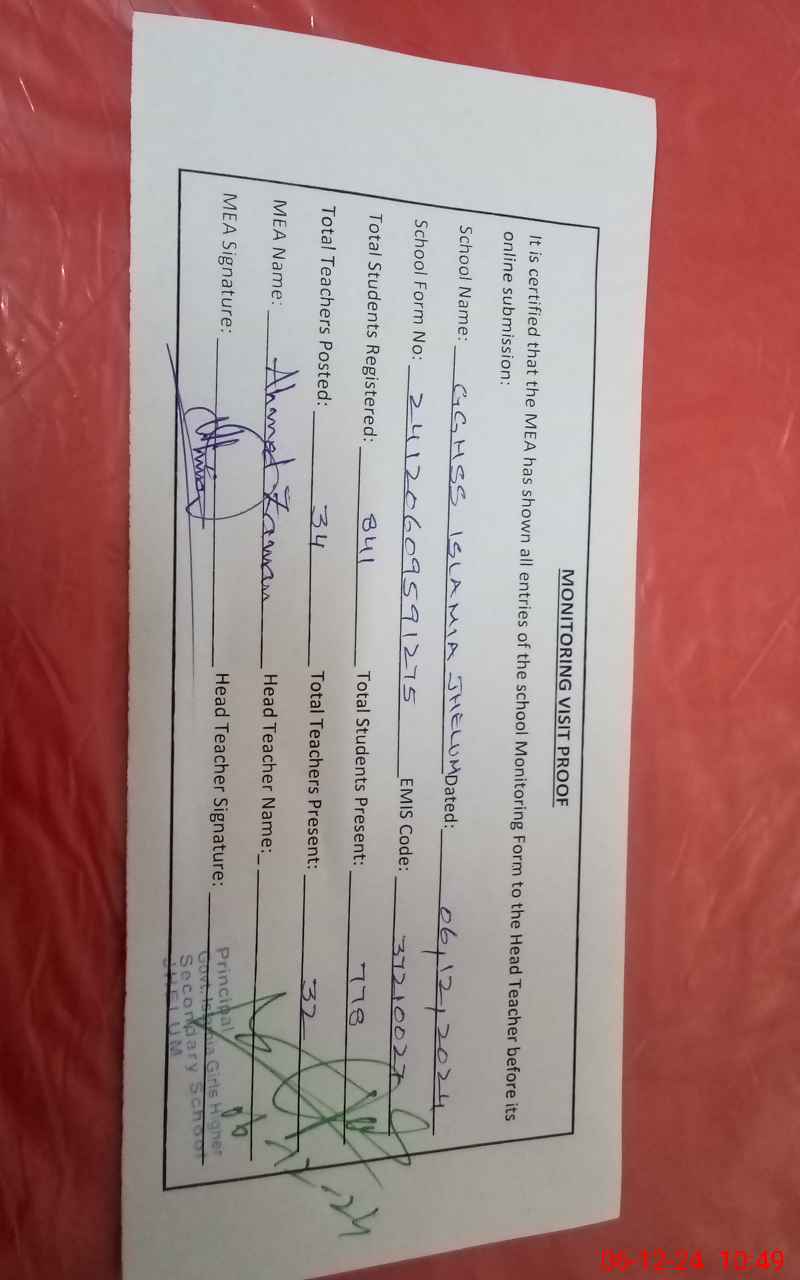 MONITORING VISIT PROOF
It is certified that the MEA has shown all entries of the school Monitoring Form to the Head Teacher before its
online submission:
School Name: GGHSS ISLAMIA JHELUM Dated: 06,12,2024
School Form No: 24120609591275 EMIS Code: 37210027
Total Students Registered: 841 Total Students Present: 778
Total Teachers Posted: 34 Total Teachers Present: 32
MEA Name: Ahmed Zaman Head Teacher Name:
MEA Signature: Head Teacher Signature:
Principal
Govt. Islamia Girls Higher
Secondary School
JHELUM
06-12-24 10:49